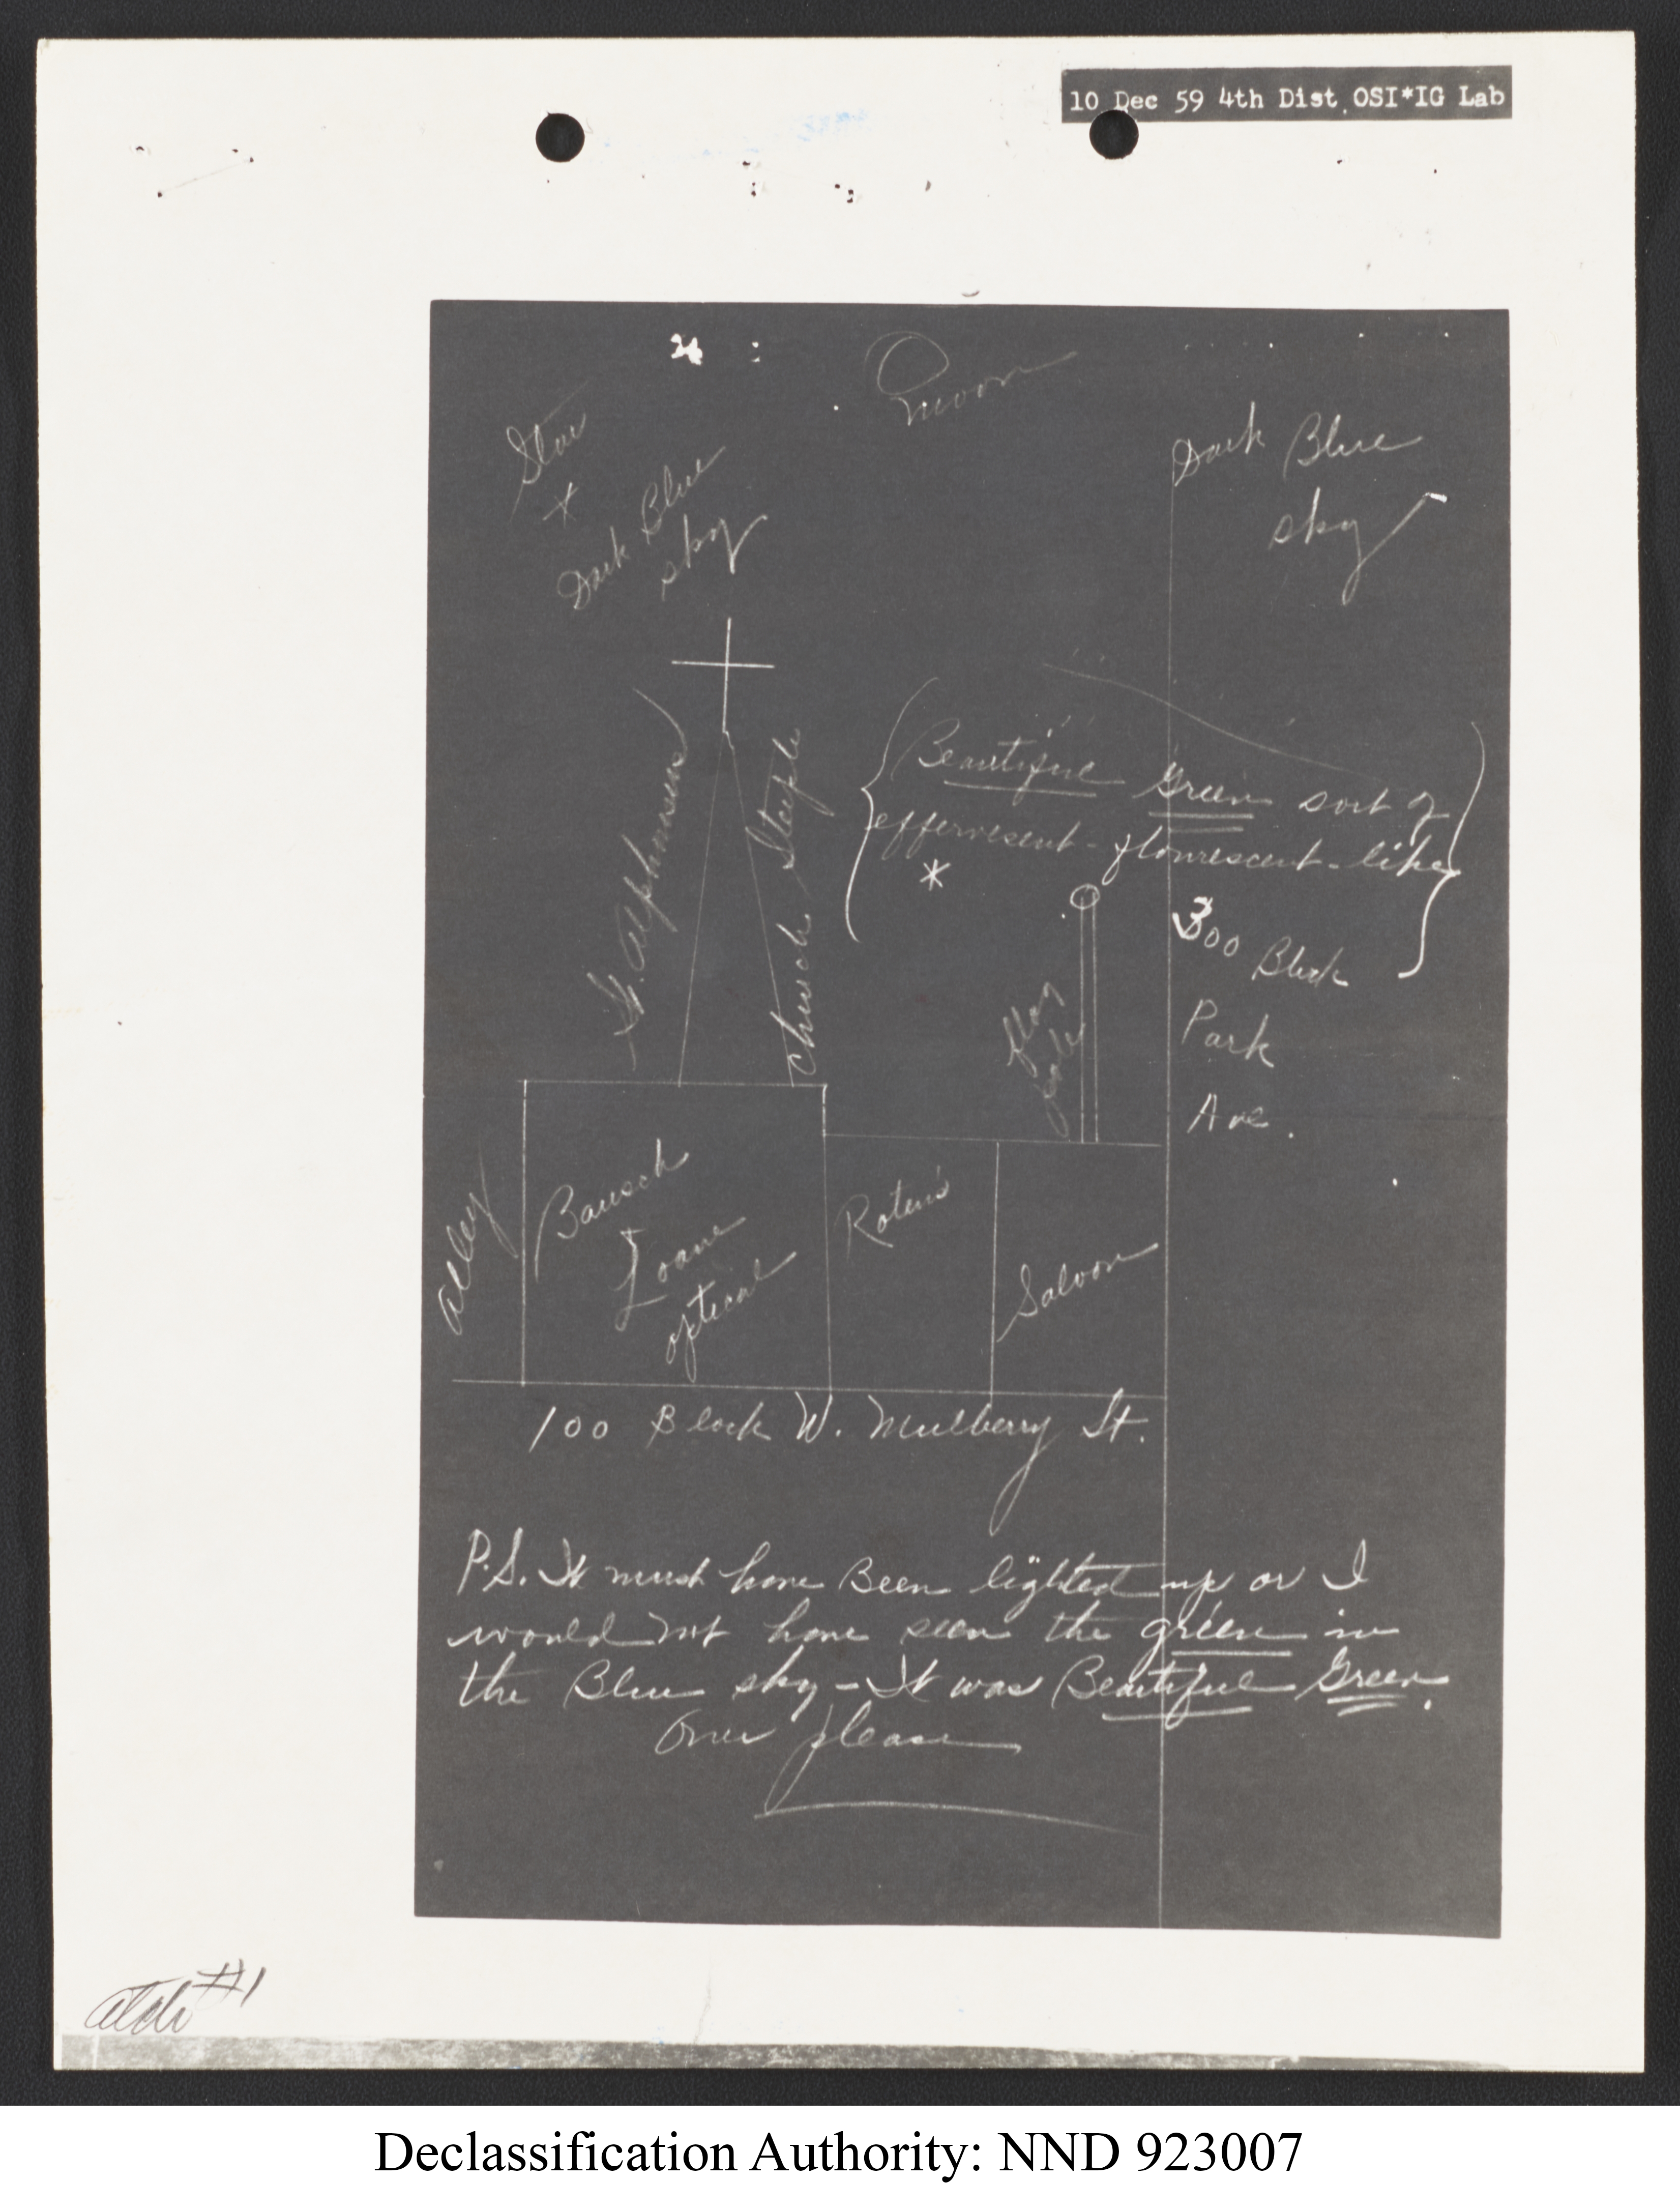 10 Dec 59 4th Dist OSI*IG Lab
moon
Star
Dark Blue
sky
Dark Blue
sky
St. Alphonsus
Church Steeple
Beautiful Green sort of
effervesent - flourescent - like
*
flag
pole
300 Block
Park
Ave.
Alley
Bausch
Loane
optical
Roten's
Saloon
100 Block W. Mulberry St.
P.S. It must have Been lighted up or I
would not have seen the green in
the Blue sky - It was Beautiful Green.
Over please
atch #1
Declassification Authority: NND 923007